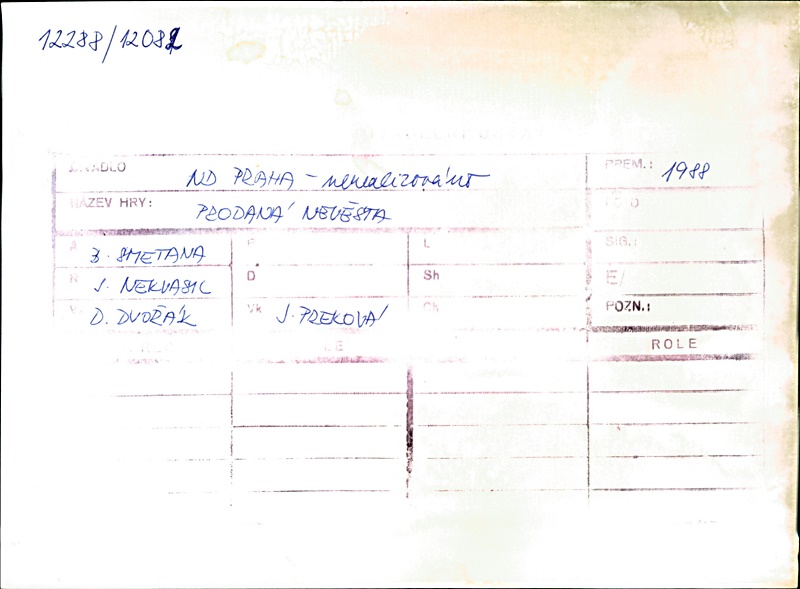 12288/12082
DIVADLO ND PRAHA - nerealizováno PREM.: 1988
NÁZEV HRY: PRODANÁ NEVĚSTA
A B. SMETANA F L SIG.:
N J. NEKVASIL D Sh E/
D. DVOŘÁK Vk J. PREKOVÁ Ch POZN.:
ROLE